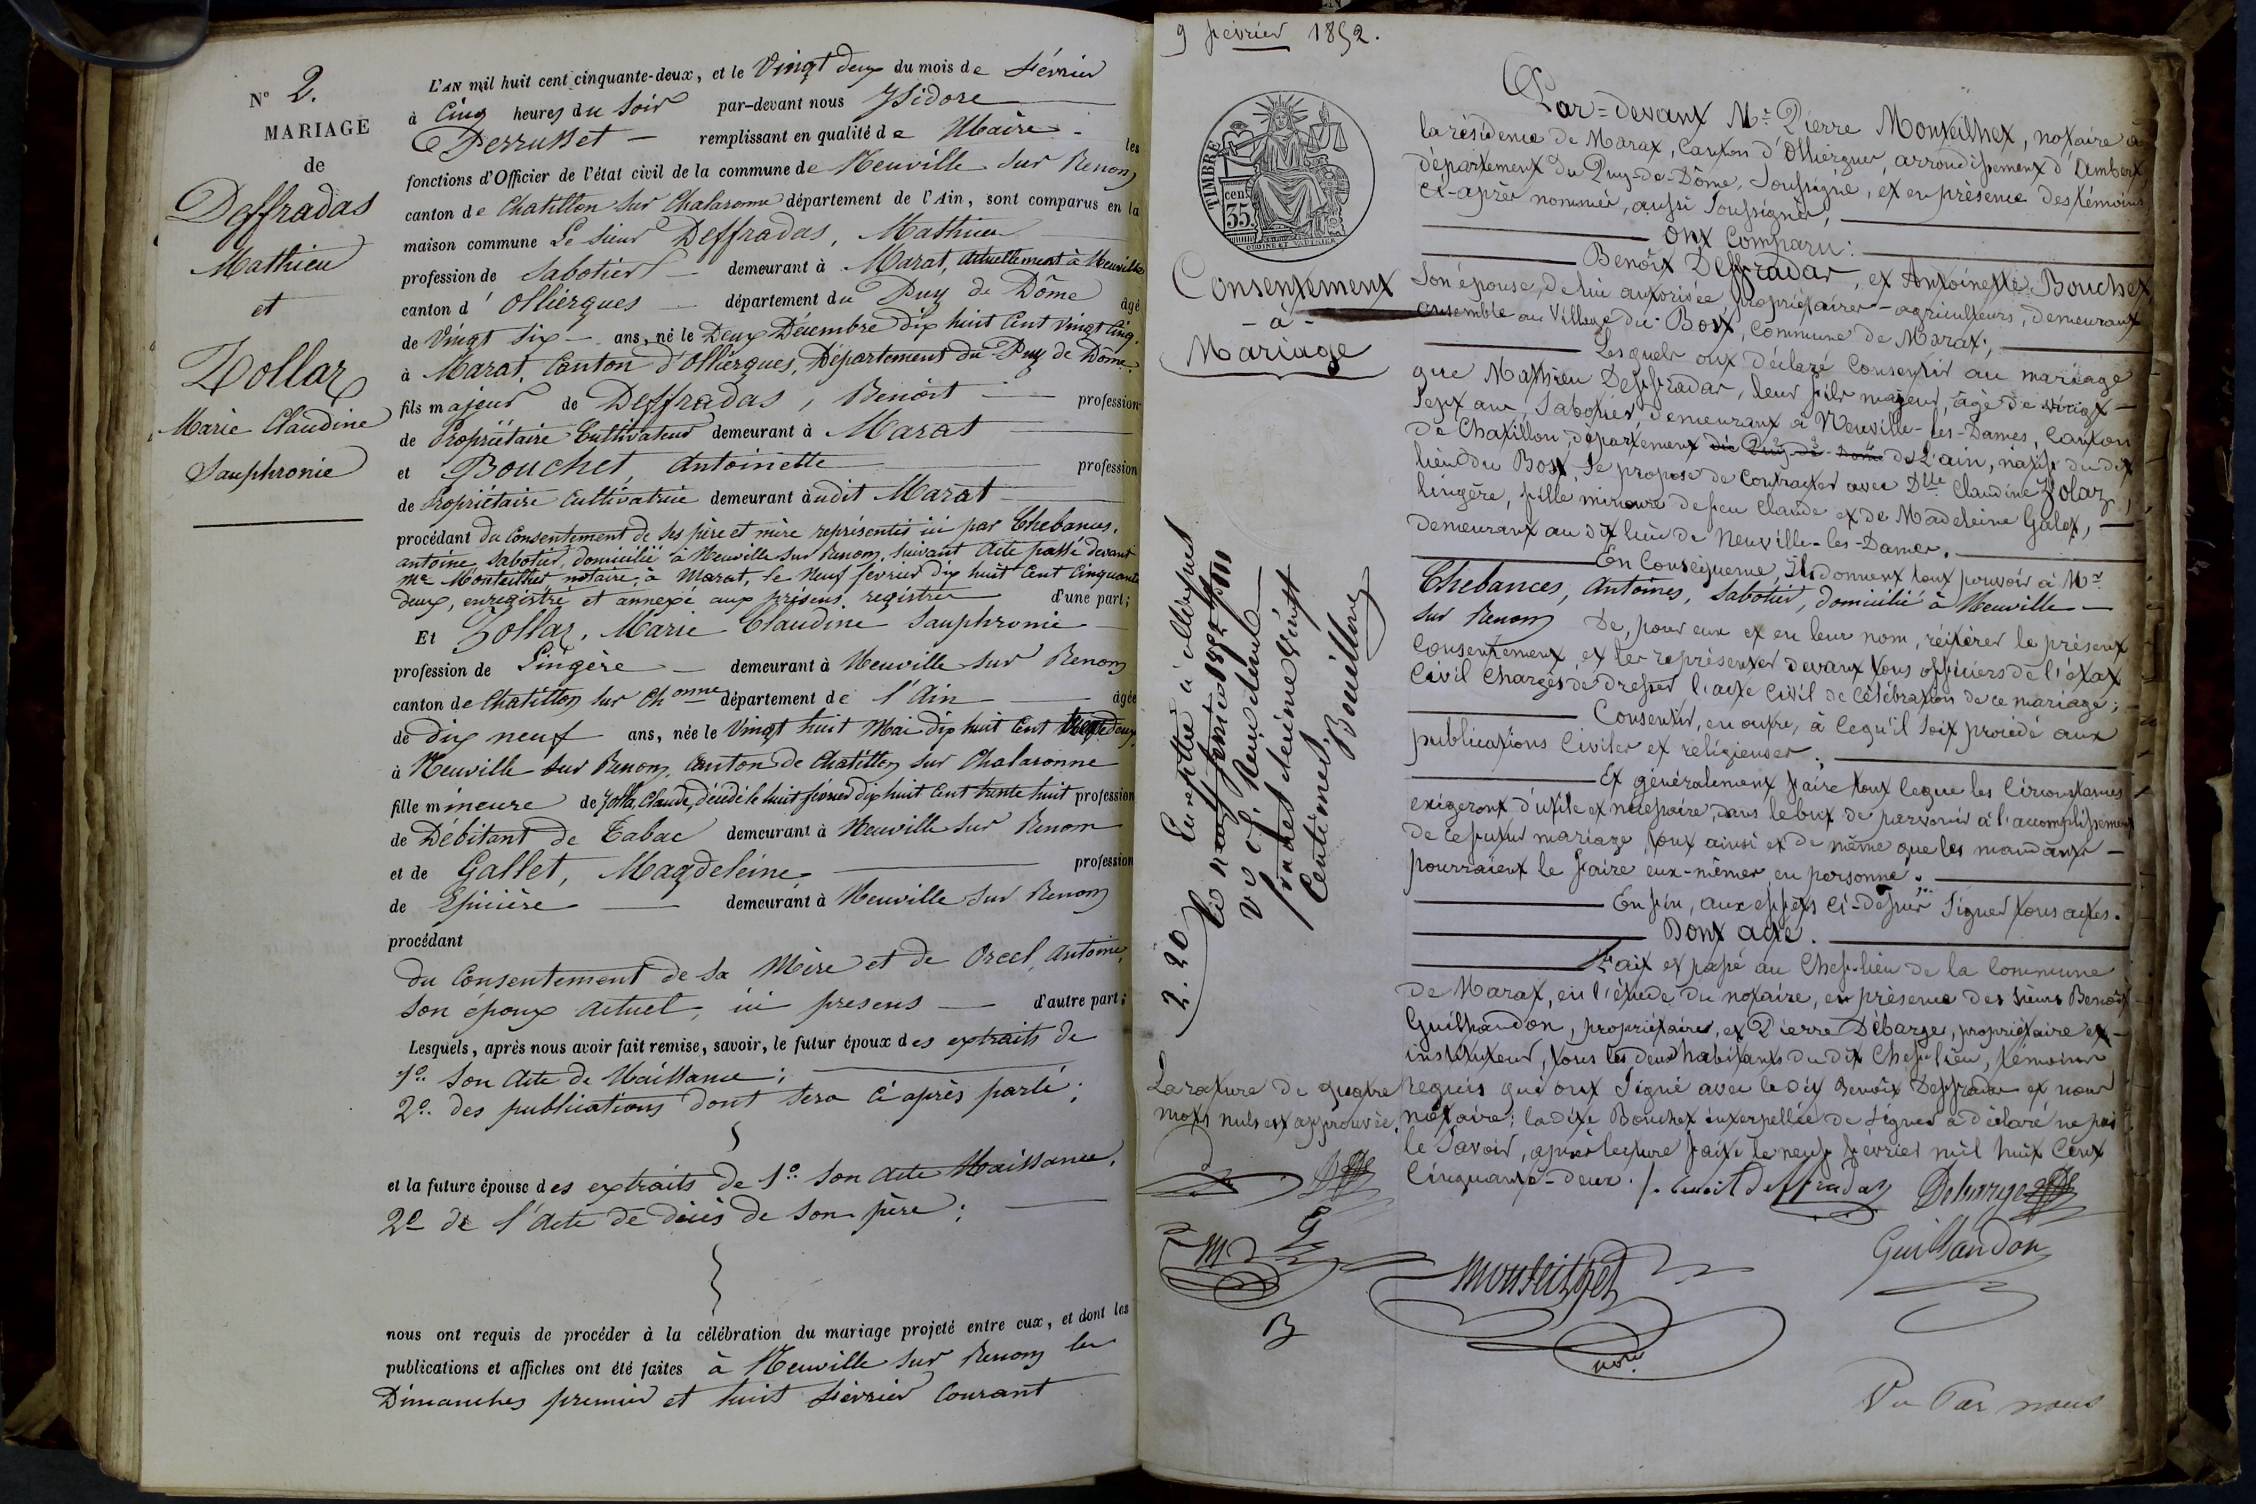 N° 2.
MARIAGE
de
Deffradas
Mathieu
et
Zollaz
Marie Claudine
Sauphronie
L'AN mil huit cent cinquante-deux, et le Vingt deux du mois de février
à Cinq heures du Soir par-devant nous Ysidore
Perrusset remplissant en qualité de Maire les
fonctions d'Officier de l'état civil de la commune de Neuville sur Renom
canton de Chatillon sur Chalaronne département de l'Ain, sont comparus en la
maison commune Le sieur Deffradas, Mathieu
profession de Sabotier demeurant à Marat, actuellement à Neuville
canton d'Olliergues département du Puy de Dôme âgé
de Vingt six ans, né le Deux Décembre dix huit Cent vingt cinq.
à Marat, Canton d'Olliergues, Département du Puy de Dôme.
fils majeur de Deffradas, Benoit profession
de Propriétaire Cultivateur demeurant à Marat
et Bouchet, Antoinette profession
de Propriétaire Cultivatrice demeurant audit Marat
procédant du Consentement de ses père et mère représentés ici par Chebances,
antoine, Sabotier, domicilié à Neuville sur Renom, suivant acte passé devant
me Monteilhet notaire, à Marat, le Neuf février dix huit Cent Cinquante
deux, enregistré et annexé aux présens registres d'une part;
Et Zollaz, Marie Claudine Sauphronie
profession de Lingère demeurant à Neuville sur Renom
canton de Chatillon sur Chonne département de l'Ain âgée
de dix neuf ans, née le Vingt huit Mai dix huit Cent trente deux,
à Neuville sur Renom, Canton de Chatillon sur Chalaronne
fille mineure de Zolla, Claude, décédé le huit février dix huit Cent trente huit profession
de Débitant de Tabac demeurant à Neuville sur Renom
et de Gallet, Magdeleine profession
de Epicière demeurant à Neuville sur Renom
procédant
du Consentement de sa Mère et de Orcel, Antoine,
son époux actuel, ici presens d'autre part;
Lesquels, après nous avoir fait remise, savoir, le futur époux des extraits de
1o. Son Acte de Naissance;
2o. des publications dont sera ci après parlé;
et la future épouse des extraits de 1o. Son Acte Naissance,
2o de l'Acte de décès de son père;
nous ont requis de procéder à la célébration du mariage projeté entre eux, et dont les
publications et affiches ont été faites à Neuville sur Renom les
Dimanches premier et huit février Courant
9 février 1852.
TIMBRE
35 cen
Consentement
- à -
Mariage
Par-devant Me Pierre Monteilhet, notaire à
la résidence de Marat, Canton d'Olliergues, arrondissement d'Ambert,
département du Puy-de-Dôme, Soussigné, et en présence des témoins
ci-après nommés, aussi Soussignés,
Ont Comparu:
Benoît Deffradas, et Antoinette Bouchet
son épouse, de lui autorisée, propriétaires-agriculteurs, demeurant
ensemble au Village du Bost, Commune de Marat;
Lesquels ont déclaré Consentir au mariage
que Mathieu Deffradas, leur fils majeur, âgé de vingt-
sept ans, Sabotier, demeurant à Neuville-les-Dames, Canton
de Chatillon, département du Puy-de-Dôme de l'ain, natif du dit
lieu du Bost, Se propose de Contracter avec Dlle Claudine Zolaz,
lingère, fille mineure de feu Claude et de Madeleine Galet,
demeurant au dit lieu de Neuville-les-Dames.
En Conséquence, Ils donnent tout pouvoir à Mr
Chebances, Antoines, Sabotier, domicilié à Neuville
sur Renom De, pour eux et en leur nom, réitérer le présent
Consentement, et les représenter devant tous officiers de l'état
Civil Chargés de dresser l'acte Civil de Célébration de ce mariage;
Consentir, en outre, à ce qu'il soit procédé aux
publications Civiles et religieuses;
Et généralement faire tout ce que les Circonstances
exigeront d'utile et nécessaire, dans le but de parvenir à l'accomplissement
de ce futur mariage, tout ainsi et de même que les mandants
pourraient le faire eux-mêmes en personne.
Enfin, aux effets ci-dessus Signer tous actes.
Dont acte.
Fait et passé au Chef-lieu de la Commune
de Marat, en l'étude du notaire, en présence des sieurs Benoît
Guilhandon, propriétaire, et Pierre Débarge, propriétaire et
instituteur, tous les deux habitants du dit Chef-lieu, témoins
requis qui ont Signé avec le dit Benoît Deffradas et nous
notaire; la dite Bouchet interpellée de signer a déclaré ne pas
le Savoir, après lecture faite, le neuf février mil huit Cent
Cinquante-deux.
La rature de quatre
mots nuls est approuvée.
benoit deffradas Debarge
Guilhandon
Monteilhet
nore
B
Vu Par nous
2.20